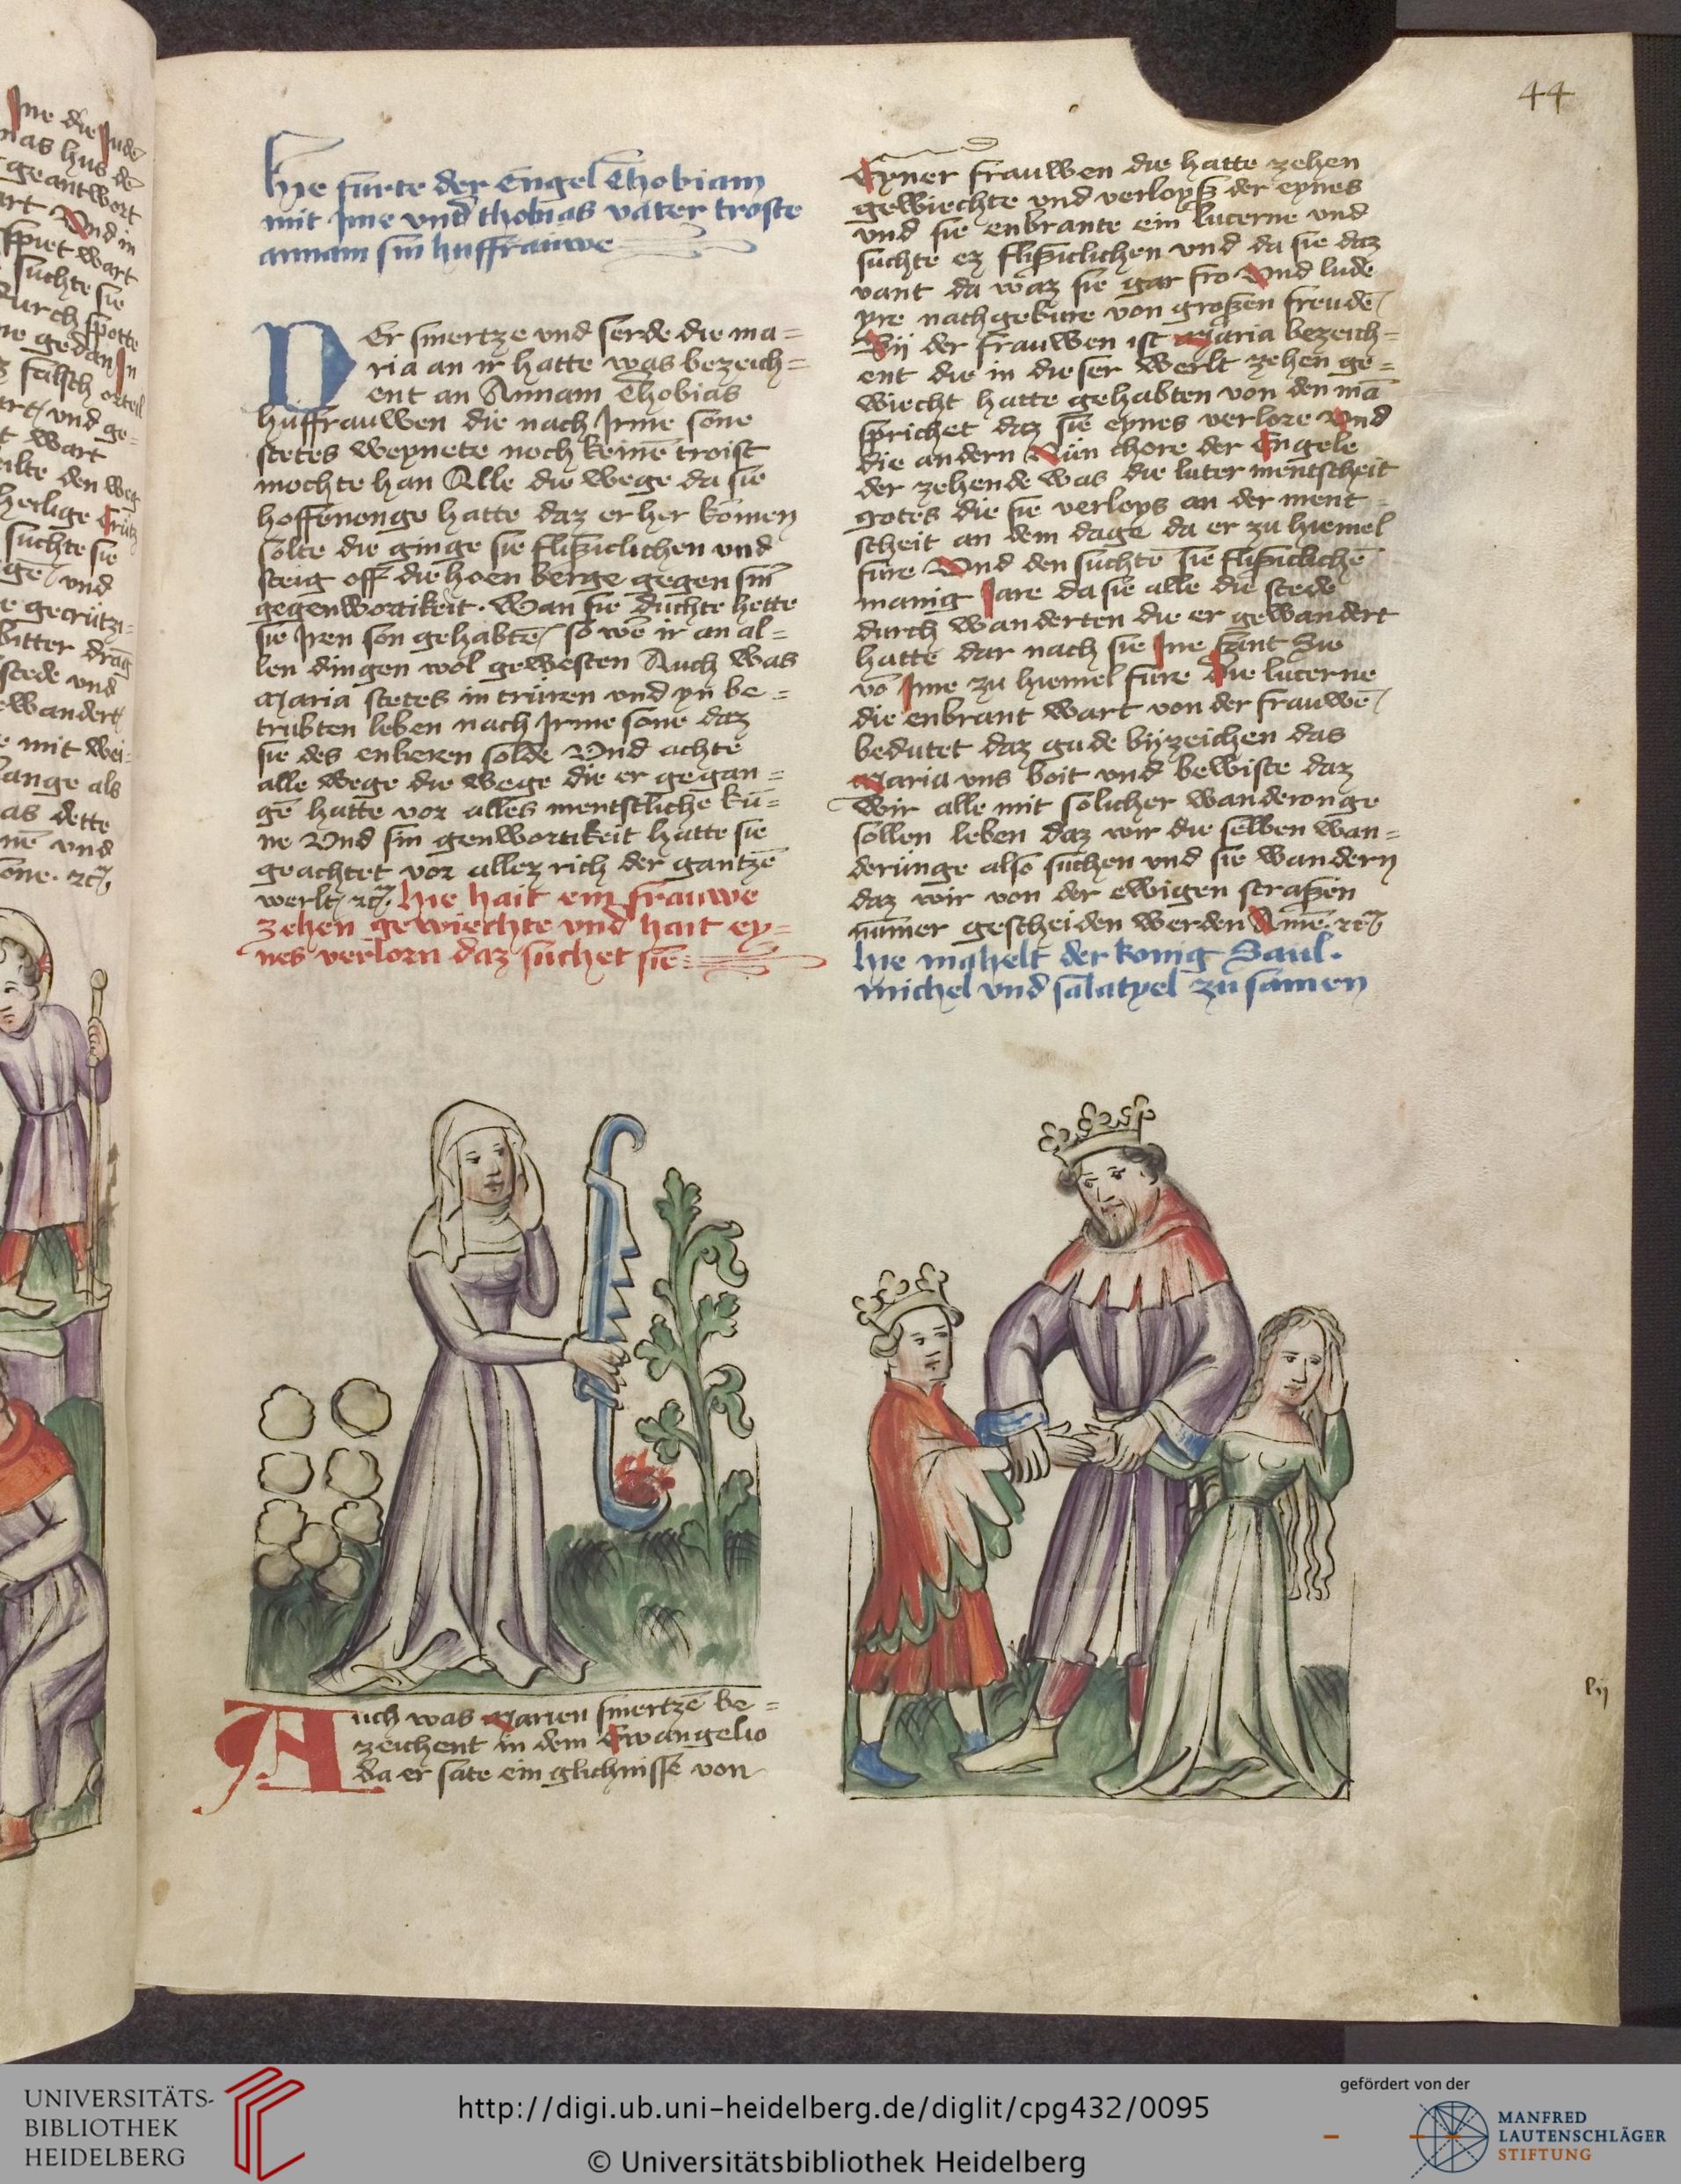 44
hie furte der Engel Thobiam
mit Ime vnd thobias vater troste
annam sin huffrauwe
DEr smertze vnd serde die ma=
ria an ir hatte was bezeich=
ent an Annam Thobias
huffrauwen die nach Irme sone
stetes weynete noch keinē troist
mochte han Alle die wege da sie
hoffenonge hatte daz er her komen
solte die ginge sie flißiclichen vnd
steig off die hoen berge gegen sinr
gegenwortikeit. Wan sie duchte hette
sie Iren son gehabtē / so wē ir an al=
len dingen wol gewesten Auch was
Maria stetes in trüren vnd yn be=
trubten leben nach Irme sone daz
sie des enberen solde Vnd achte
alle wege die wege die er gegan=
gē hatte vor alles mentstliche kü=
ne Vnd sin genwortikeit hatte sie
geachtet vor allez rich der gantzē
werlt / ꝛc. hie hait ein frauwe
zehen gewiechte vnd hait ey=
nes verlorn daz suchet sie
Auch was Marien smertzē be=
zeichent in dem Ewangelio
da er sate ein glichnisse von
Eyner frauwen die hatte zehen
gewiechte vnd verloyß der eynes
vnd sie enbrante ein lucerne vnd
suchte ez flißiclichen vnd da sie daz
vant da waz sie gar fro Vnd lude
yre nachgebure von großen freudē /
Bij der frauwen ist Maria bezeich=
ent die in dieser werlt zehen ge=
wiecht hatte gehabten von den mā
sprichet daz sie eynes verlore Vnd
die andern Nün chore der Engele
der zehende was die luter mentscheit
gotes die sie verloys an der ment=
scheit an dem dage da er zu hiemel
fure Vnd den suchtē sie flißiclichē
manig Jare da sie alle die stede
durch wanderten die er gewandert
hatte dar nach sie Ine sant Sie
vō Ime zu hiemel fure Die lucerne
die enbrant wart von der frauwē /
bedutet daz gude byzeichen das
Maria vns boit vnd bewiste daz
wir alle mit solicher wanderonge
sollen leben daz wir die selben wan=
derünge also suchen vnd sie wandern
daz wir von der ewigen straßen
nūmer gescheiden werden Amē. ꝛc.
hie mahelt der konig Saul.
michel vnd salatyel zu samen
lij
UNIVERSITÄTS-
BIBLIOTHEK
HEIDELBERG
http://digi.ub.uni-heidelberg.de/diglit/cpg432/0095
© Universitätsbibliothek Heidelberg
gefördert von der
MANFRED
LAUTENSCHLÄGER
STIFTUNG